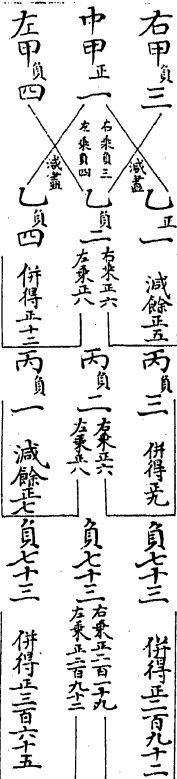 右甲負三
減盡
乙正一
減餘正五
丙負三
併得正九
負七十三
併得正二百九十二
中甲正一
右乘負三
左乘負四
乙負二
右乘正六
左乘正八
丙負二
右乘正六
左乘正八
負七十三
右乘正二百一十九
左乘正二百九十二
左甲負四
減盡
乙負四
併得正十二
丙負一
減餘正七
負七十三
併得正三百六十五